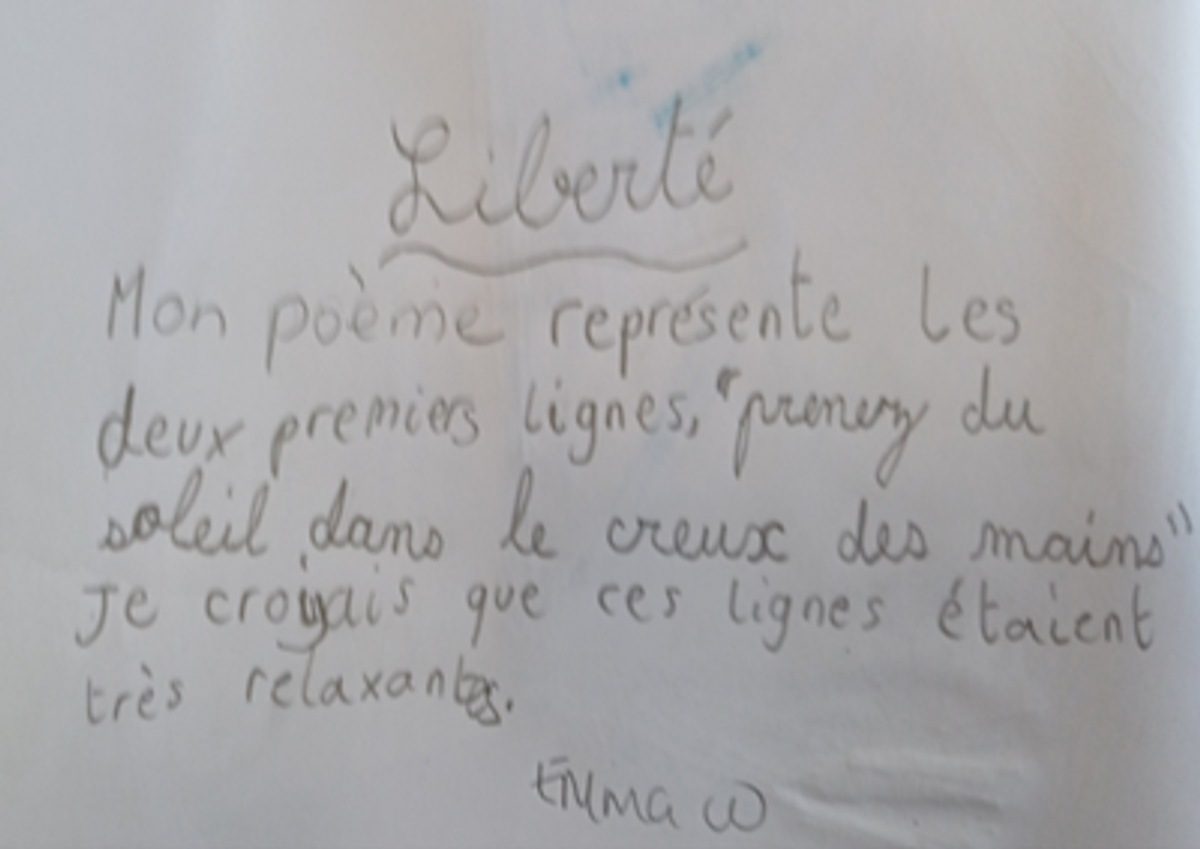 Liberté
Mon poème représente les
deux premiers lignes, "prenez du
soleil dans le creux des mains"
Je croyais que ces lignes étaient
très relaxantes.
Emma W